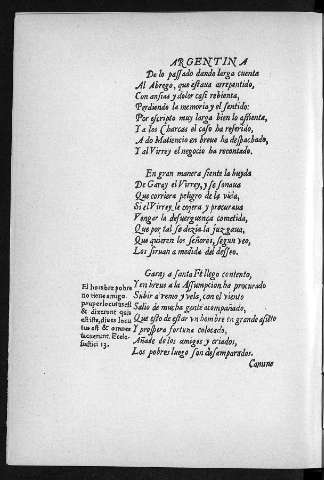 ARGENTINA
De lo passado dando larga cuenta
Al Abrego, que estaua arrepentido,
Con ansias y dolor casi rebienta,
Perdiendo la memoria y el sentido:
Por escripto muy larga bien lo assienta,
Y a los Charcas el caso ha referido,
A do Matiencio en breue ha despachado,
Y al Virrey el negocio ha recontado.
En gran manera siente la huyda
De Garay el Virrey, y se sonaua
Que corriera peligro de la vida,
Si el Virrey le cogera y procuraua
Vengar la desuerguença cometida,
Que por tal se dezia la juzgaua,
Que quieren los señores, segun veo,
Los siruan a medida del desseo.
Garay a santa Fè llego contento,
Y en breue a la Assumpcion ha procurado
Subir a remo y vela, con el viento
Salio de mucha gente acompañado,
Que esto de estar vn hombre en grande assiêto
Y prospera fortuna colocado,
Añade de los amigos y criados,
Los pobres luego son desemparados.
El hombre pobre
no tiene amigo.
pauper locutus est
& dixerunt quis
est iste, diues locu
tus est & omnes
tacuerunt. Eccle-
siastici 13.
Camino